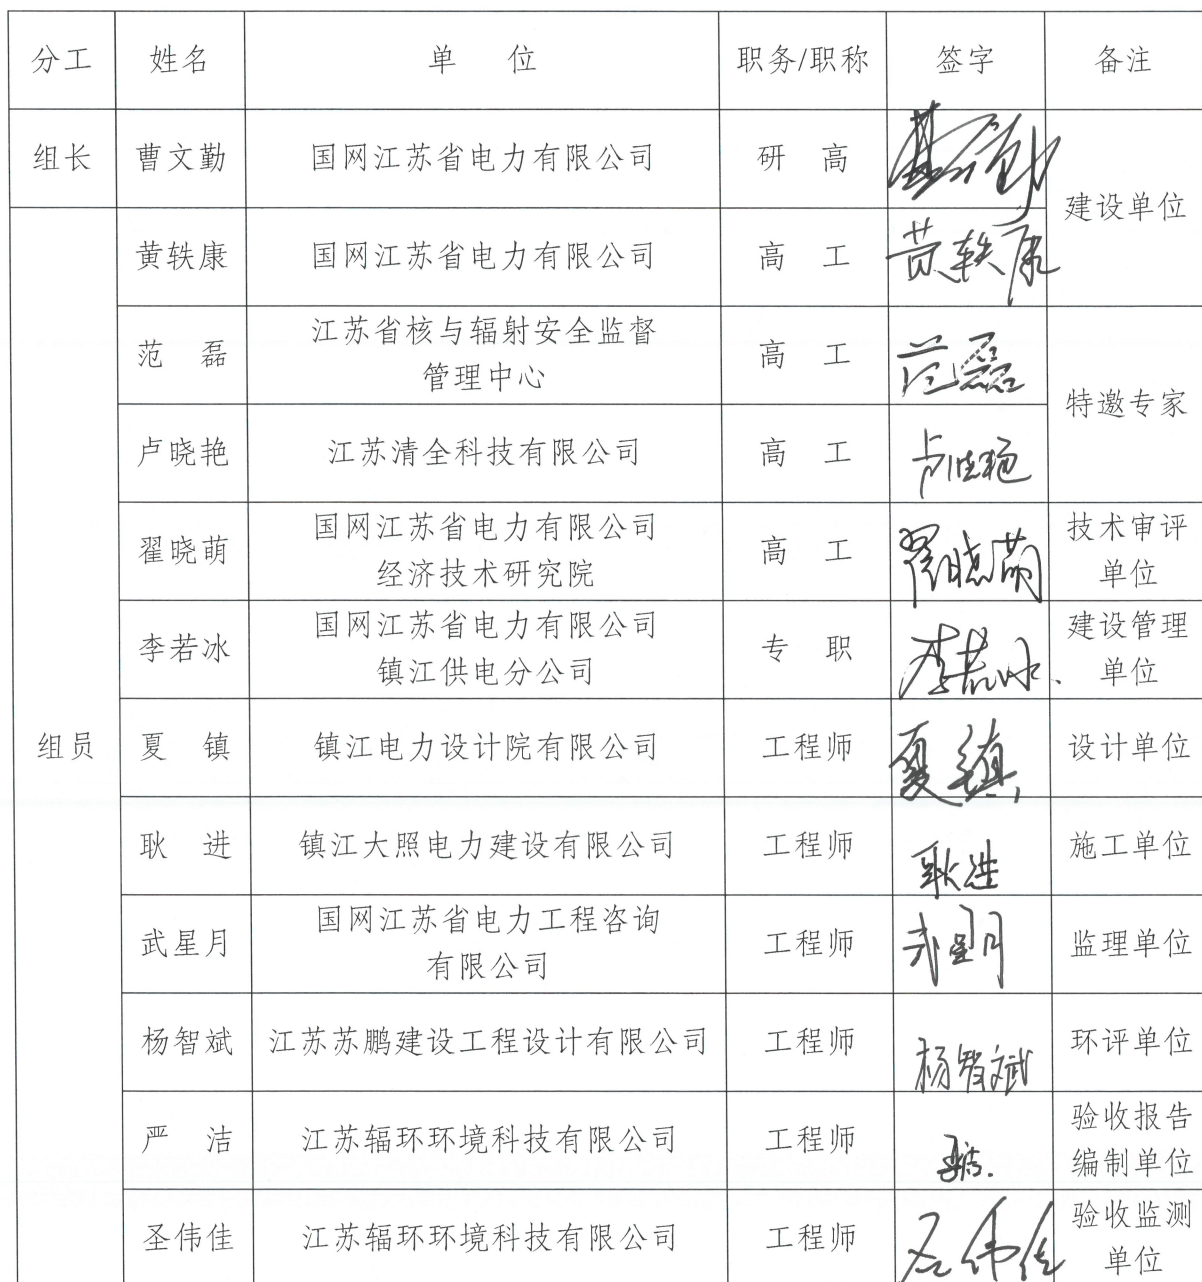 分工 姓名 单 位 职务/职称 签字 备注
组长 曹文勤 国网江苏省电力有限公司 研 高 曹文勤
建设单位
黄轶康 国网江苏省电力有限公司 高 工 黄轶康
范 磊 江苏省核与辐射安全监督
管理中心 高 工 范磊
特邀专家
卢晓艳 江苏清全科技有限公司 高 工 卢晓艳
翟晓萌 国网江苏省电力有限公司
经济技术研究院 高 工 翟晓萌 技术审评
单位
李若冰 国网江苏省电力有限公司
镇江供电分公司 专 职 李若冰 建设管理
单位
组员 夏 镇 镇江电力设计院有限公司 工程师 夏镇 设计单位
耿 进 镇江大照电力建设有限公司 工程师 耿进 施工单位
武星月 国网江苏省电力工程咨询
有限公司 工程师 武星月 监理单位
杨智斌 江苏苏鹏建设工程设计有限公司 工程师 杨智斌 环评单位
严 洁 江苏辐环环境科技有限公司 工程师 严洁 验收报告
编制单位
圣伟佳 江苏辐环环境科技有限公司 工程师 圣伟佳 验收监测
单位